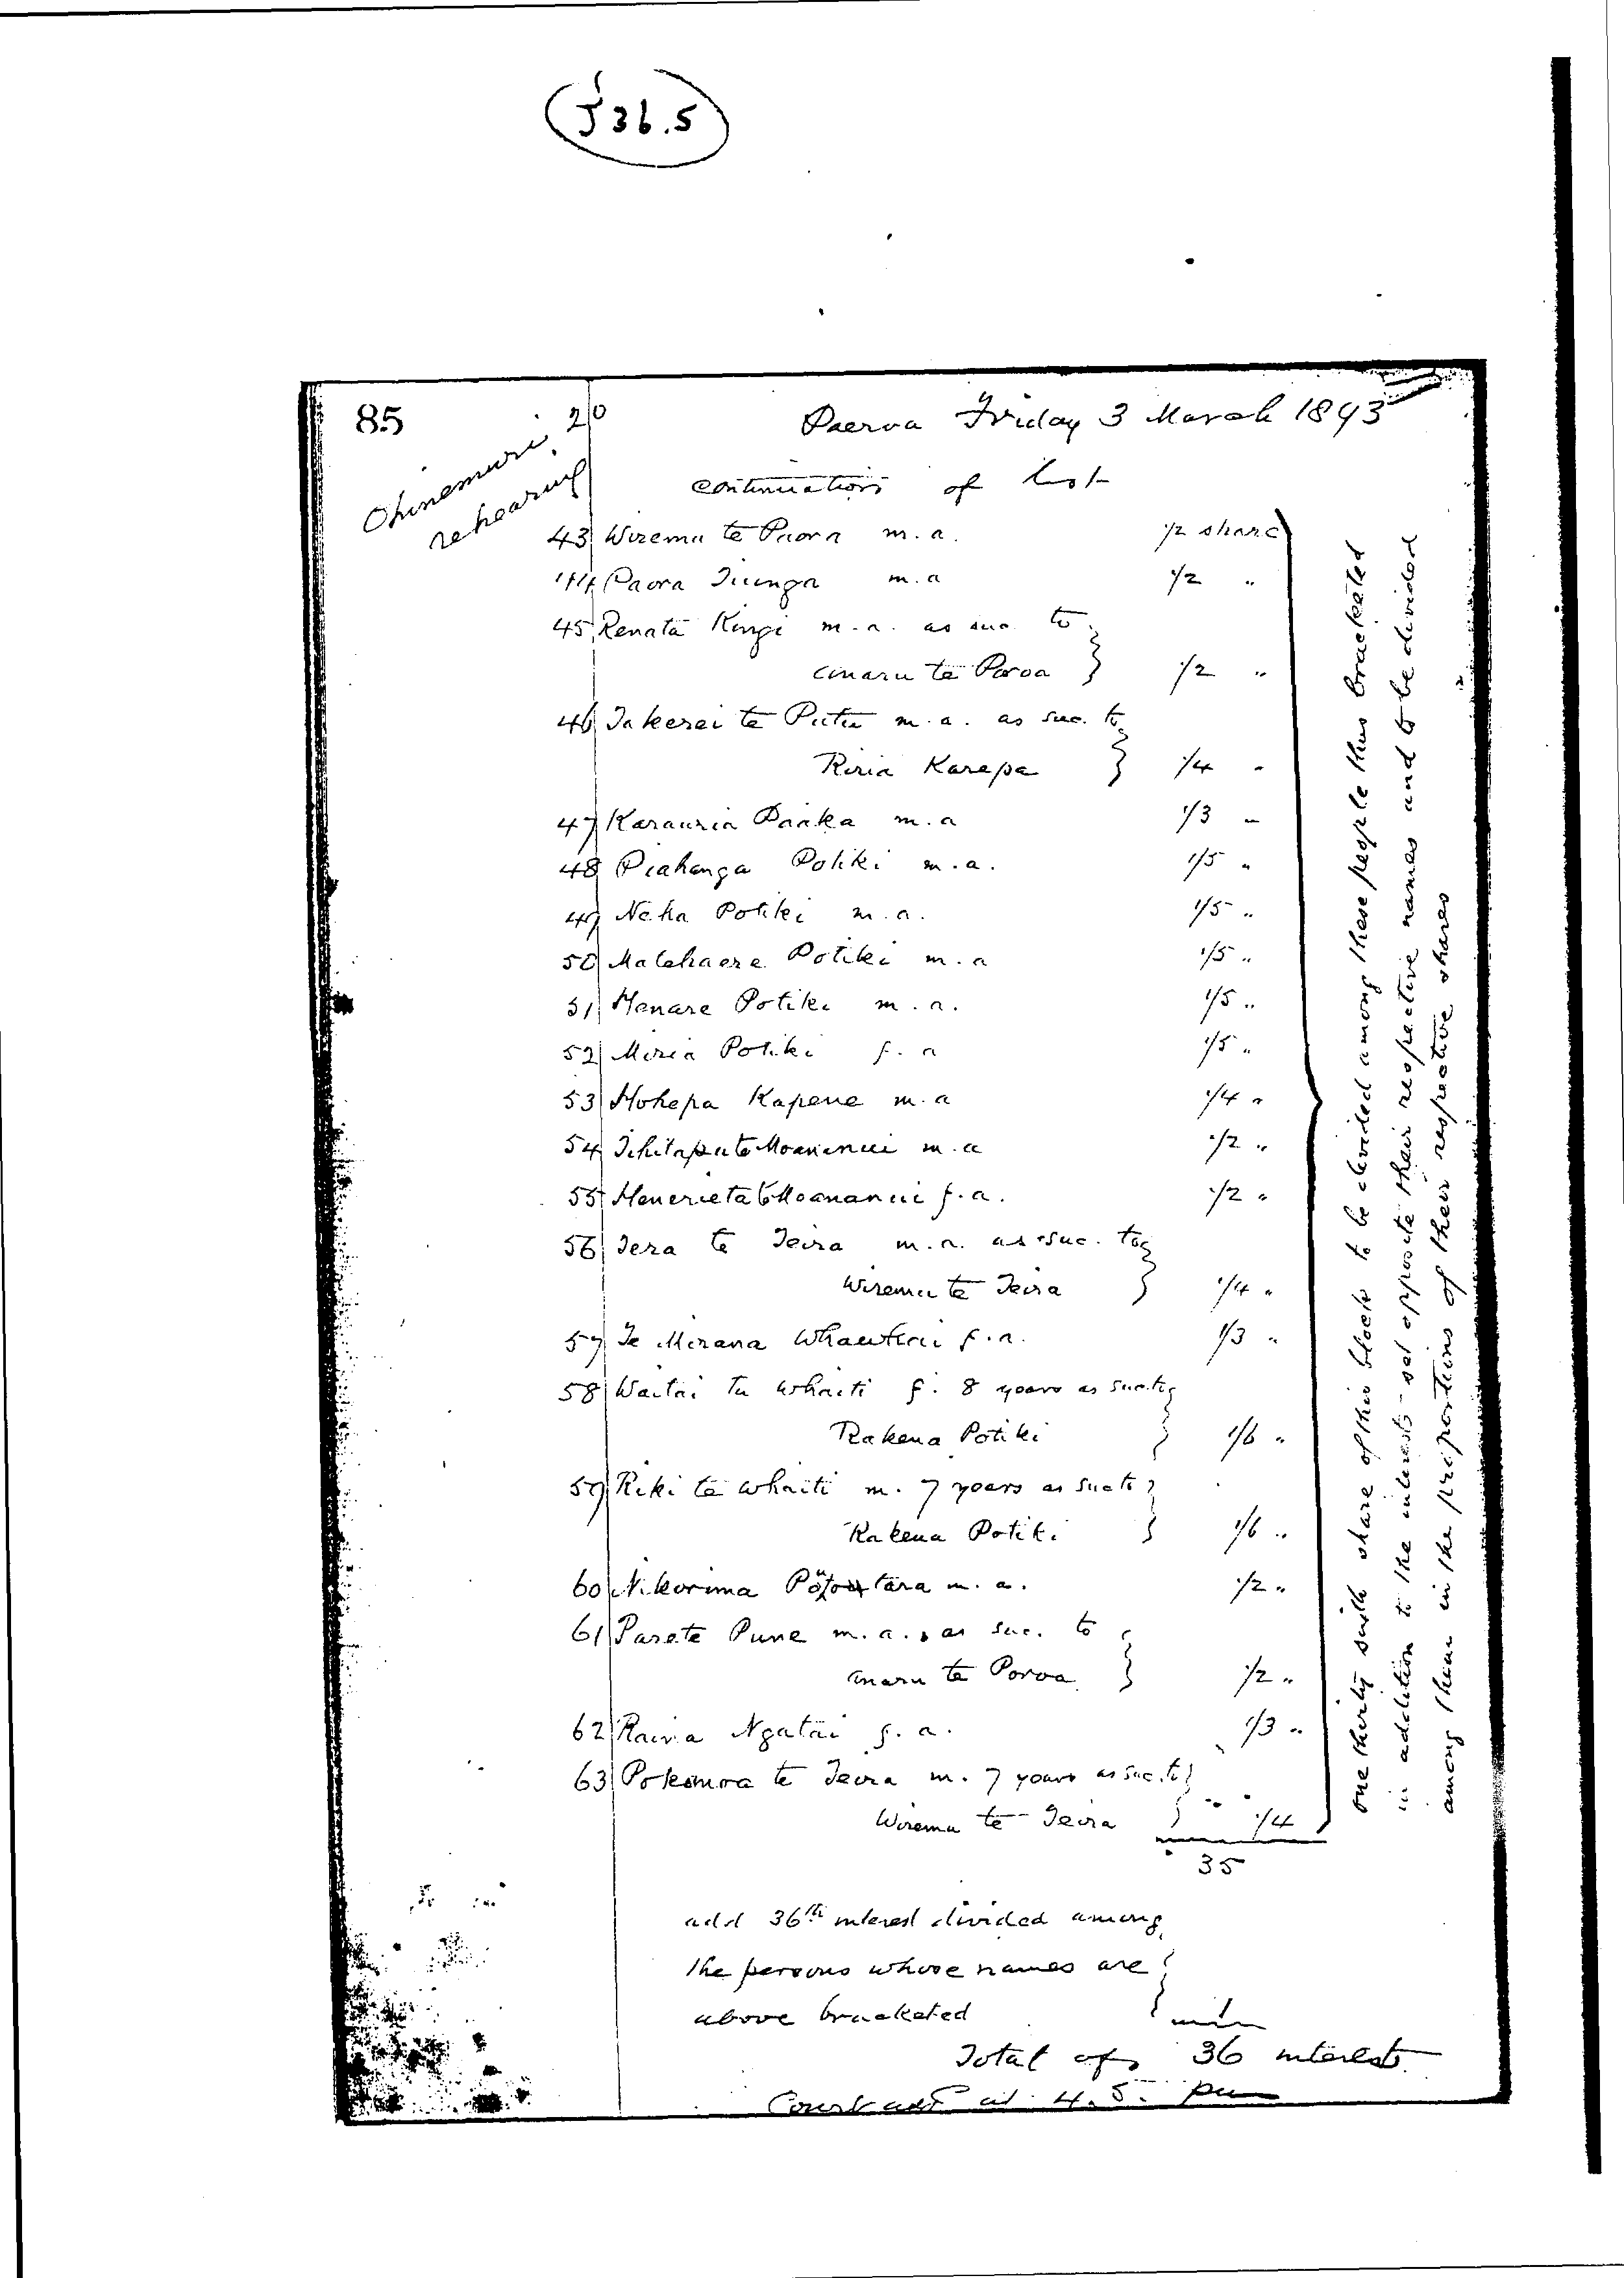 J 36.5
85
20
Paeroa Friday 3 March 1893
Ohinemuri
rehearing
continuation of list
43 Wiremu te Paora m. a. 1/2 share
44 Paora Tiunga m. a 1/2 "
45 Renata Kingi m. a. as suc. to
te Poroa } 1/2 "
46 Takerei te Putu m. a. as suc. to
Riria Karepa } 1/4 "
47 Karauria Paaka m. a 1/3 "
48 Piahanga Potiki m. a. 1/5 "
49 Neha Potiki m. a. 1/5 "
50 Potiki m. a 1/5 "
51 Henare Potiki m. a. 1/5 "
52 Miria Potiki f. a 1/5 "
53 Hohepa Kapene m. a 1/4 "
54 te Moananui m. a 1/2 "
55 Henerieta te Moananui f. a. 1/2 "
56 Tera te Teira m. a. as suc. to
Wiremu te Teira } 1/4 "
57 Te Mirana f. a. 1/3 "
58 Waitai te Whaiti f. 8 years as suc. to
Rakena Potiki } 1/6 "
59 Riki te Whaiti m. 7 years as suc to
Rakena Potiki } 1/6 "
60 Nikorima m. a. 1/2 "
61 Parete Pune m. a. as suc. to
te Poroa } 1/2 "
62 Rairia Ngatai f. a. 1/3 "
63 te Teira m. 7 years as suc. to
Wiremu te Teira } 1/4
35
one thirty sixth share of this block to be divided among these people thus bracketed
in addition to the interests set opposite their respective names and to be divided
among them in the proportions of their respective shares
add 36th interest divided among
the persons whose names are
above bracketed
Total of 36 interests
Court adj at 4.5. pm